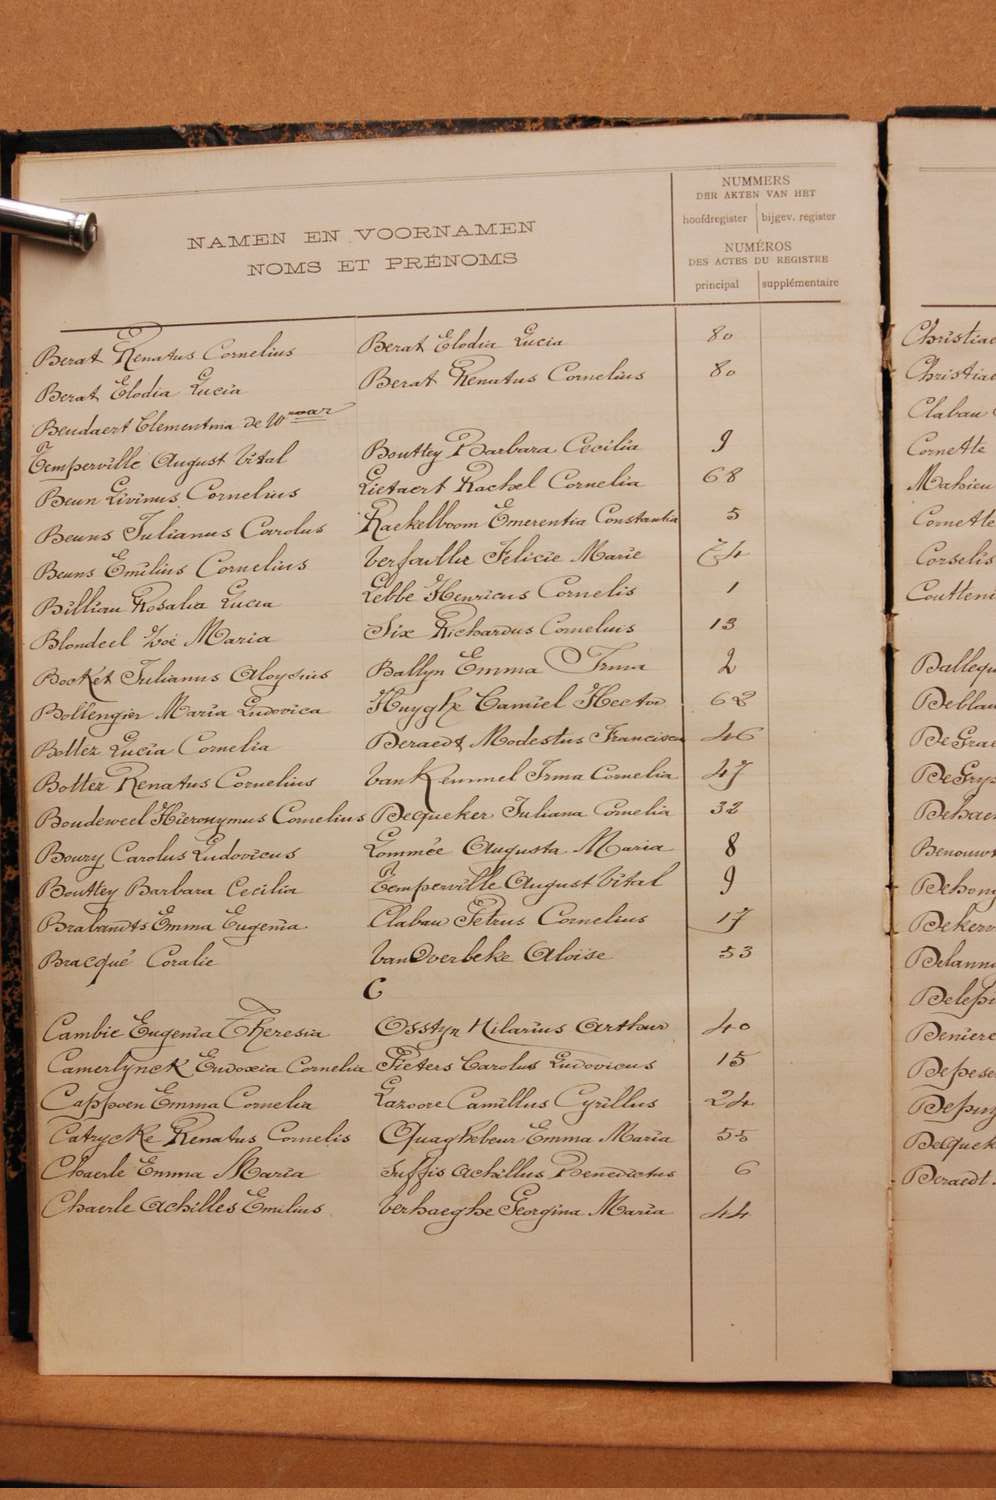 NUMMERS
DER AKTEN VAN HET
hoofdregister bijgev. register
NAMEN EN VOORNAMEN
NOMS ET PRÉNOMS
NUMÉROS
DES ACTES DU REGISTRE
principal supplémentaire
Berat Renatus Cornelius Berat Elodia Lucia 80
Berat Elodia Lucia Berat Renatus Cornelius 80
Beudaert Clementina de
Temperville August Vital Bouttey Barbara Cecilia 9
Beun Livinus Cornelius Lietaert Rachel Cornelia 68
Beuns Julianus Carolus Raekelboom Emerentia Constantia 5
Beuns Emilius Cornelius Verfaillie Felicie Marie 74
Billiau Rosalia Lucia Lebbe Henricus Cornelis 1
Blondeel Zoé Maria Six Richardus Cornelius 13
Bockét Julianus Aloysius Ballyn Emma Irma 2
Bollengier Maria Ludovica Huyghe Camiel Hector 62
Botter Lucia Cornelia Deraedt Modestus Francisca 46
Botter Renatus Cornelius Van Kemmel Irma Cornelia 47
Boudeweel Hieronymus Cornelius Dequeker Juliana Cornelia 32
Boury Carolus Ludovicus Lommée Augusta Maria 8
Bouttey Barbara Cecilia Temperville August Vital 9
Brabandts Emma Eugenia Clabau Petrus Cornelius 17
Bracqué Coralie Van Overbeke Aloïse 53
C
Cambie Eugenia Theresia Osstyn Hilarius Arthur 40
Camerlynck Eudoxia Cornelia Pieters Carolus Ludovicus 15
Cappoen Emma Cornelia Lazoore Camillus Cyrillus 24
Catrycke Renatus Cornelis Quaghebeur Emma Maria 55
Chaerle Emma Maria Suffis Achillus Benedictus 6
Chaerle Achilles Emilius Verhaeghe Georgina Maria 44
Christiae
Christiae
Clabau
Cornette
Mahieu
Cornette
Corselis
Coutteni
Dallequ
Deblau
De Grae
De Grys
Dehae
Benouwt
Dehong
Dekerv
Delann
Delepi
Deniere
Depese
Depuy
Dequek
Deraedt